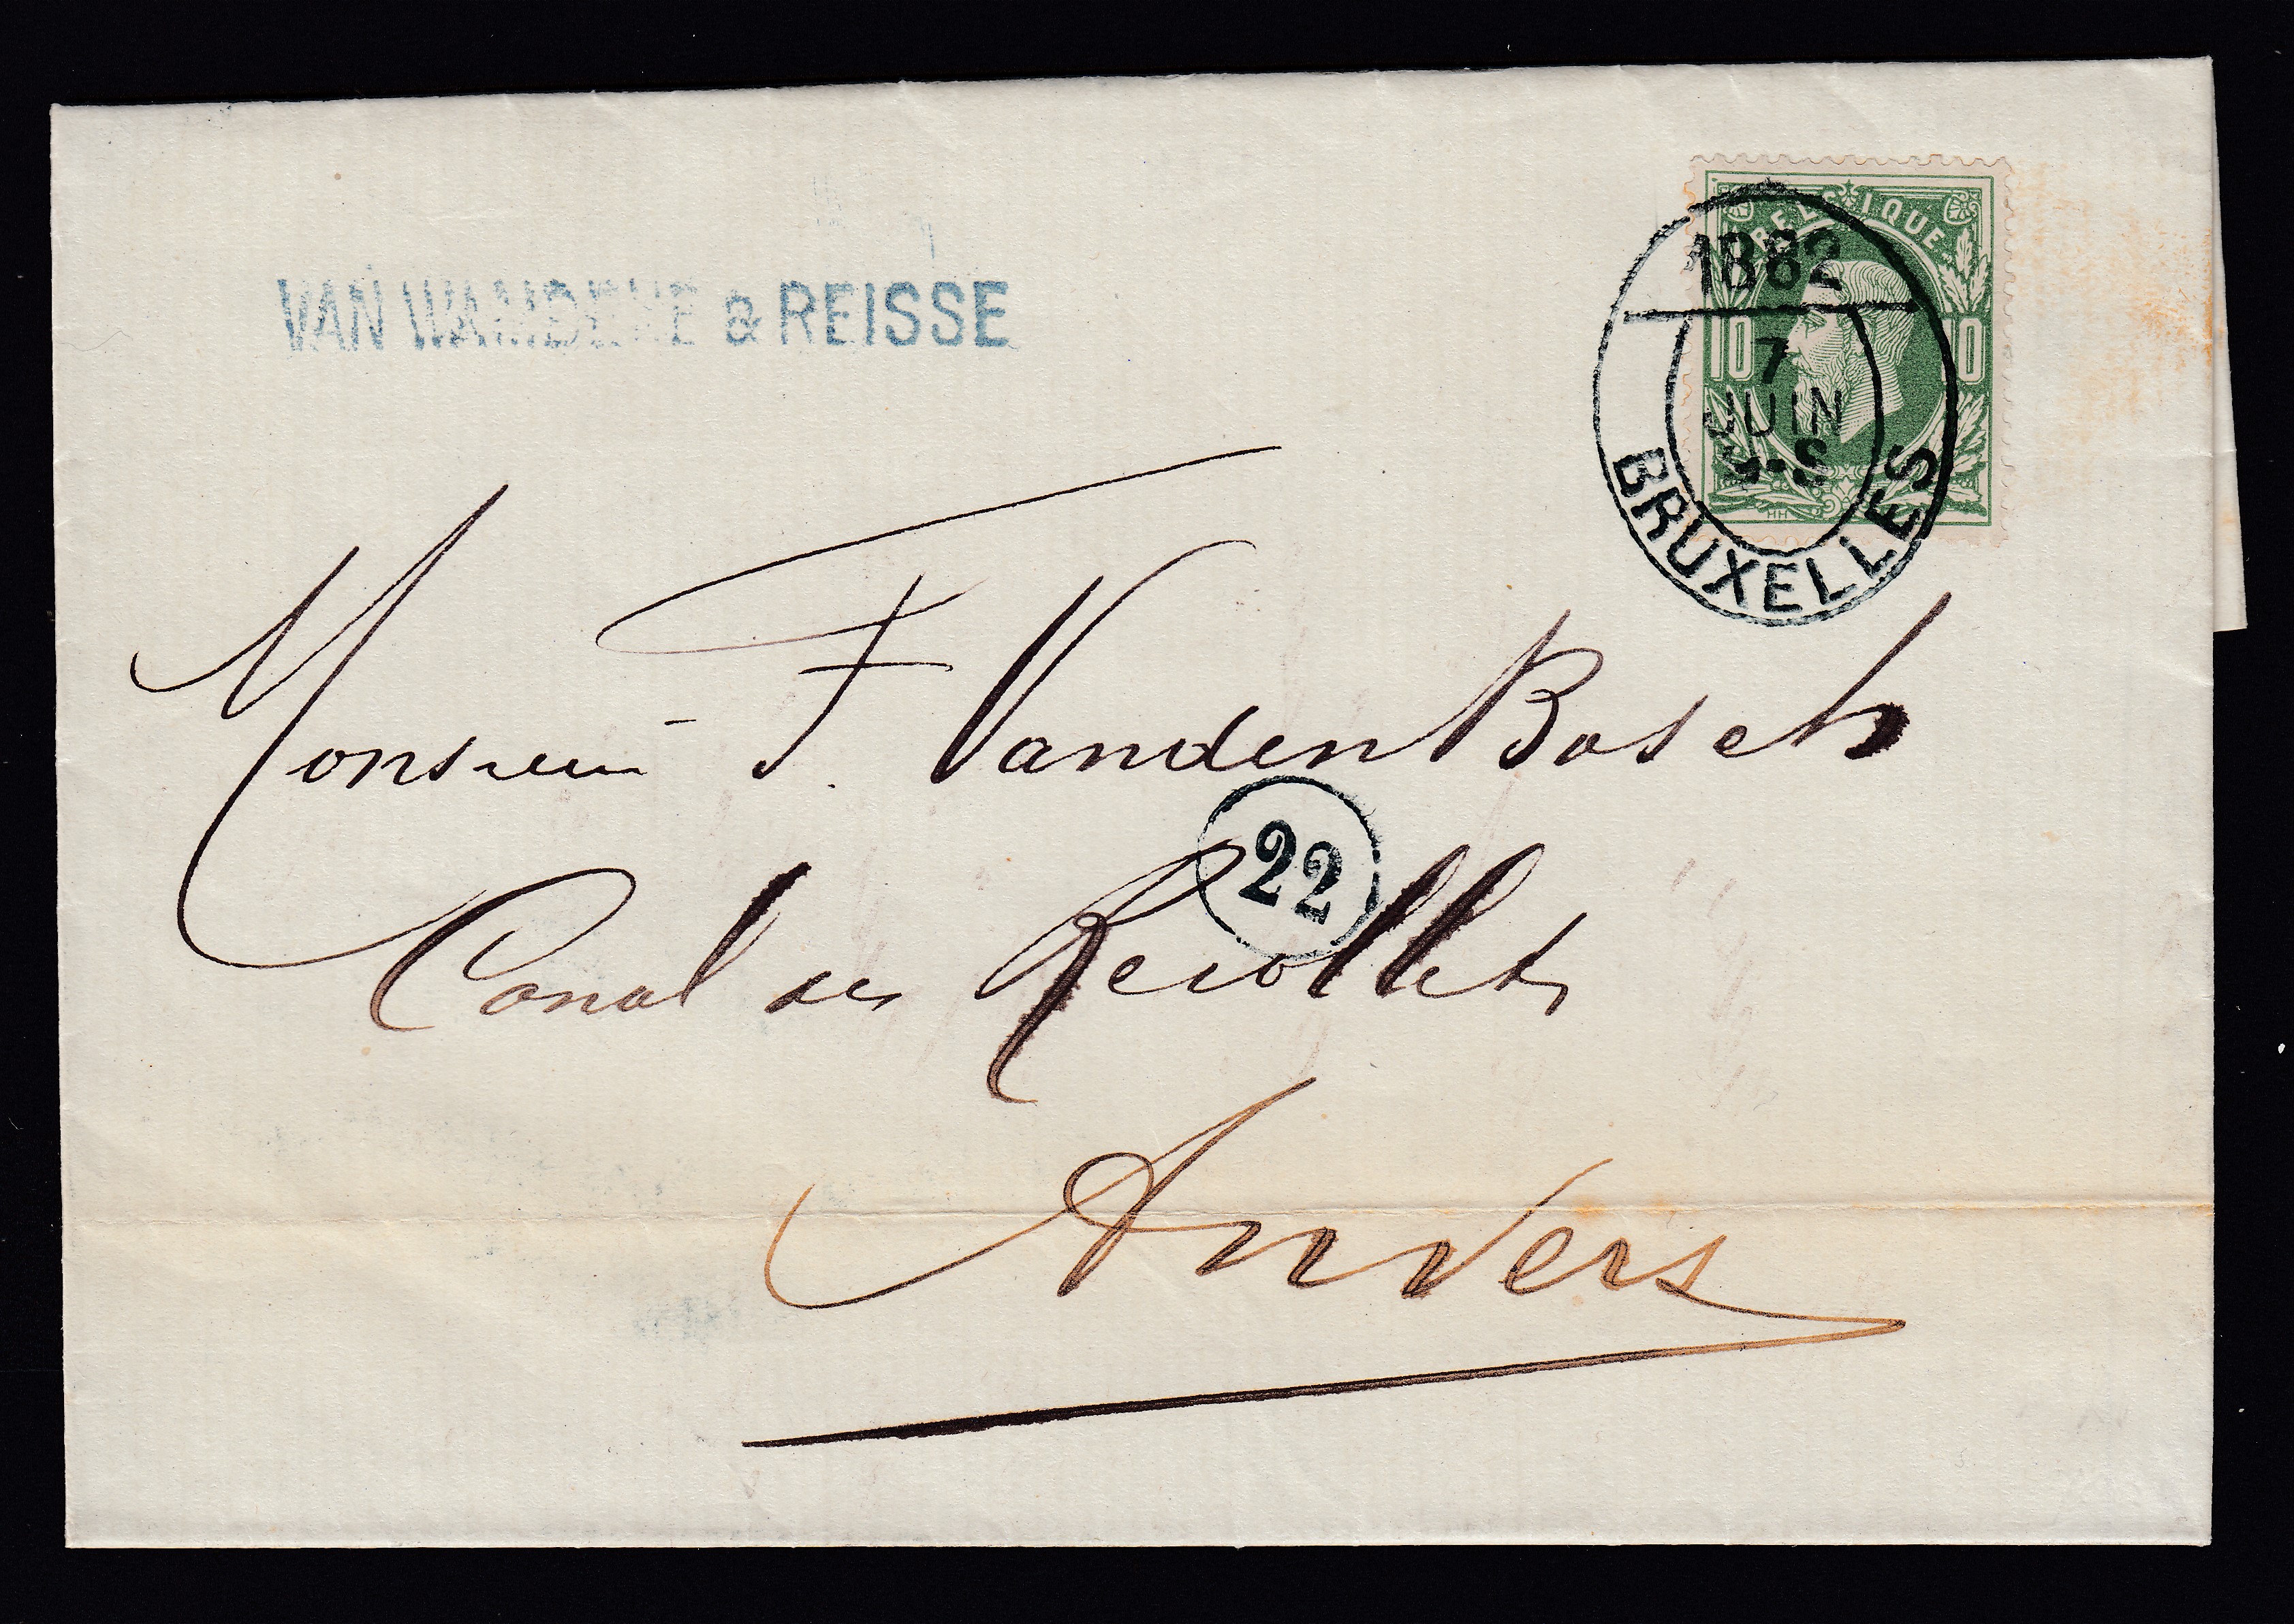 VAN & REISSE
BELGIQUE
10 10
1882
7
JUIN
-S
BRUXELLES
HH
Monsieur F. VandenBosch
22
Canal des Recollets
Anvers